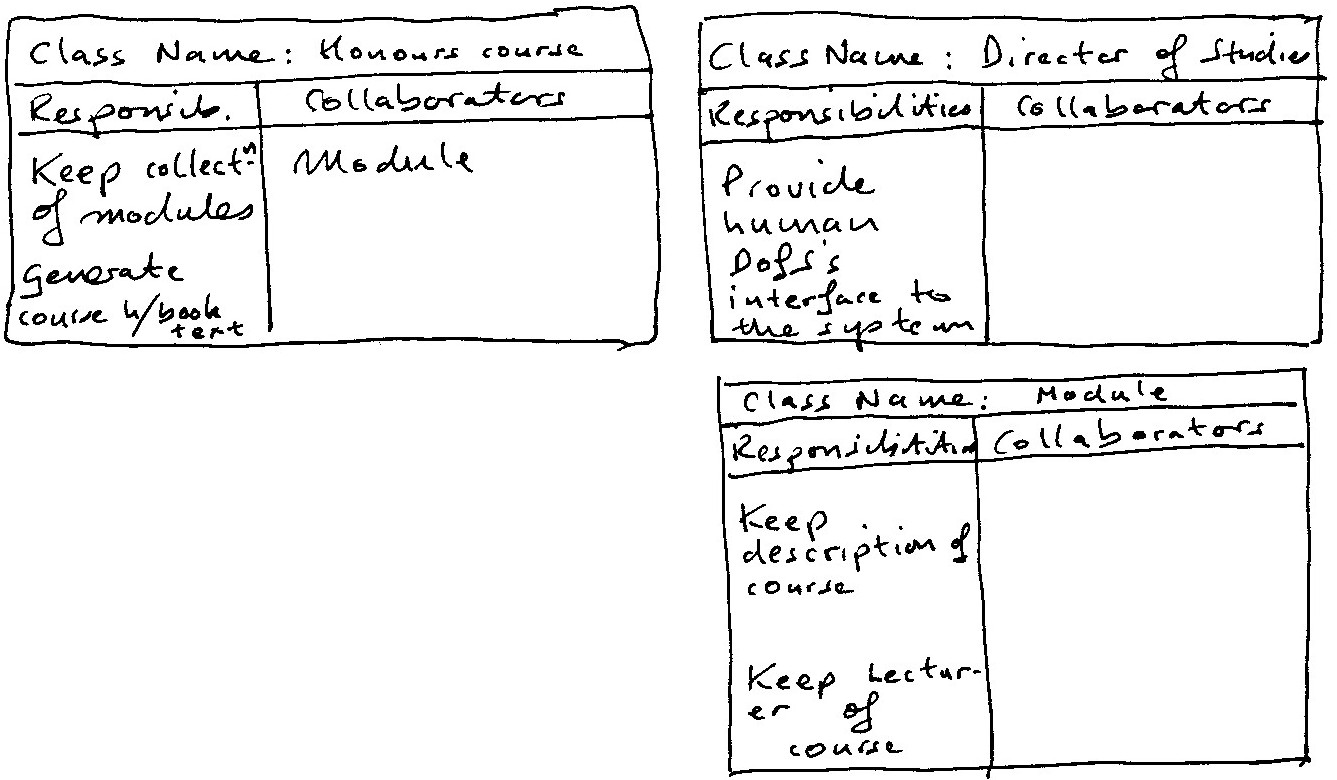 Class Name: Honours course
Responsib. Collaborators
Keep collectⁿ Module
of modules
Generate
course h/book
text
Class Name: Director of Studies
Responsibilities Collaborators
Provide
human
DofS's
interface to
the system
Class Name: Module
Responsibilities Collaborators
Keep
description of
course
Keep Lectur-
er of
course